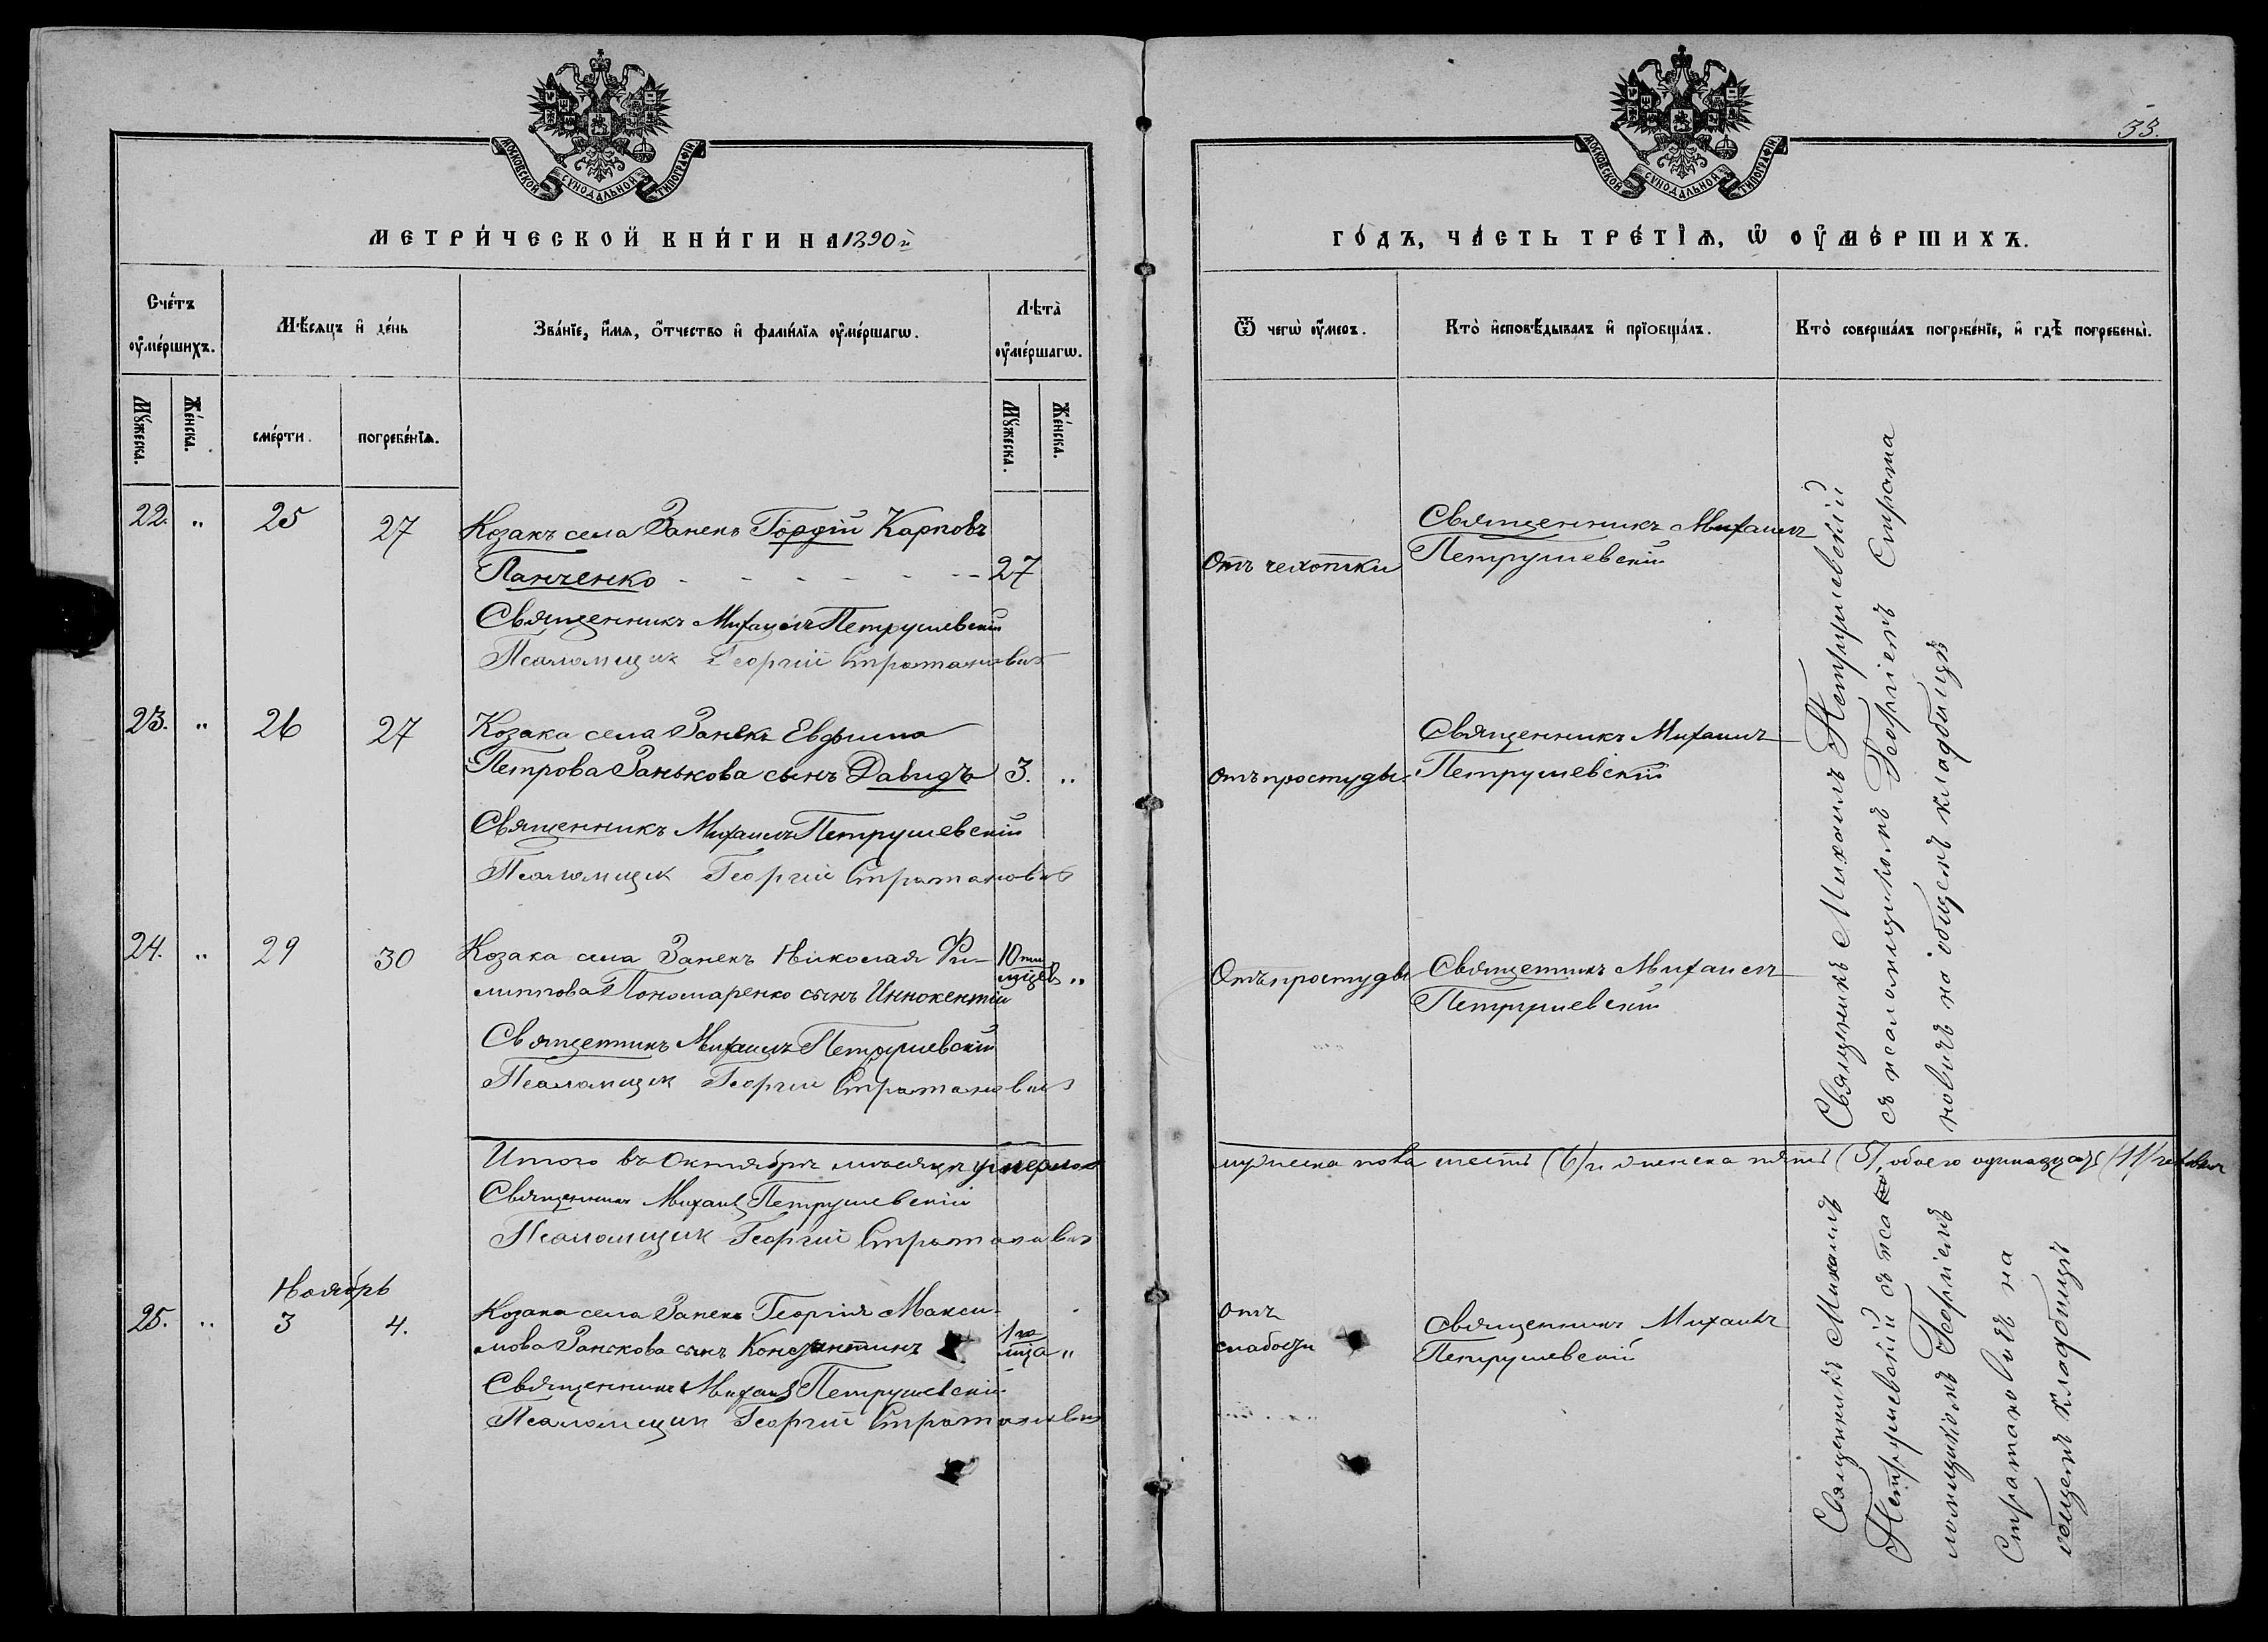 МОСКОВСКОЙ СѴНОДАЛЬНОЙ ТИПОГРАФІИ
МЕТРИ́ЧЕСКОЙ КНИ́ГИ НА 1890й
Счётъ ᲂу҆ме́ршихъ.
Мѣ́сяцъ и҆ де́нь
Зва́нїе, и҆́мя, ѻ҆́тчество и҆ фамилїя ᲂу҆ме́ршагѡ.
Лѣ́та ᲂу҆ме́ршагѡ.
Мꙋ́жеска.
Же́нска.
сме́рти.
погребе́нїѧ.
Мꙋ́жеска.
Же́нска.
22. " 25 27 Козакъ села Занекъ Гордій Карповъ
Панченко - - - - - - - 27
Священникъ Михаилъ Петрушевскій
Псаломщикъ Георгій Стратановичъ
23. " 26 27 Козака села Занекъ Евфима
Петрова Занькова сынъ Давидъ 3. "
Священникъ Михаилъ Петрушевскій
Псаломщикъ Георгій Стратановичъ
24. " 29 30 Козака села Занекъ Николая Фи- 10ти
липпова Пономаренко сынъ Иннокентій мцевъ "
Священникъ Михаилъ Петрушевскій
Псаломщикъ Георгій Стратановичъ
Итого въ Октябрѣ мѣсяцѣ умерло
Священникъ Михаилъ Петрушевскій
Псаломщикъ Георгій Стратановичъ
Ноябрь
25. " 3 4. Козака села Занекъ Георгія Макси-
мова Занькова сынъ Константинъ 1го мца "
Священникъ Михаилъ Петрушевскій
Псаломщикъ Георгій Стратановичъ
33.
МОСКОВСКОЙ СѴНОДАЛЬНОЙ ТИПОГРАФІИ
ГО́ДЪ, ЧА́СТЬ ТРЕ́ТЇѦ, Ѡ҆ ОУ҆МЕ́РШИХЪ.
Ѿ чегѡ̀ ᲂу҆́меръ.
Кто̀ и҆сповѣ́дывалъ и҆ прїѡбща́лъ.
Кто̀ соверша́лъ погребе́нїе, и҆ гдѣ̀ погребены̀.
Отъ чахотки
Священникъ Михаилъ
Петрушевскій
отъ простуды.
Священникъ Михаилъ
Петрушевскій
Отъ простуды
Священникъ Михаилъ
Петрушевскій
Священникъ Михаилъ Петрушевскій
съ псаломщикомъ Георгіемъ Страта
новичъ на общемъ кладбищѣ
мужеска пола шесть (6) и женска пять (5), обоего одинадцать (11) человекъ
отъ
слабости
Священникъ Михаилъ
Петрушевскій
Священникъ Михаилъ
Петрушевскій съ пса
ломщикомъ Георгіемъ
Стратановичъ на
общемъ кладбищѣ